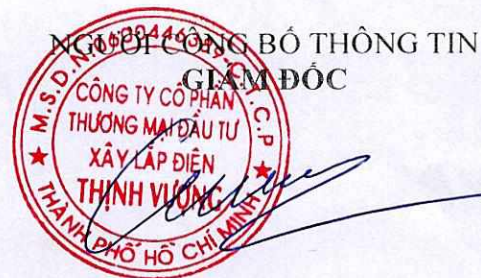 NGƯỜI CÔNG BỐ THÔNG TIN
GIÁM ĐỐC
CÔNG TY CỔ PHẦN
THƯƠNG MẠI ĐẦU TƯ
XÂY LẮP ĐIỆN
THỊNH VƯỢNG
THÀNH PHỐ HỒ CHÍ MINH